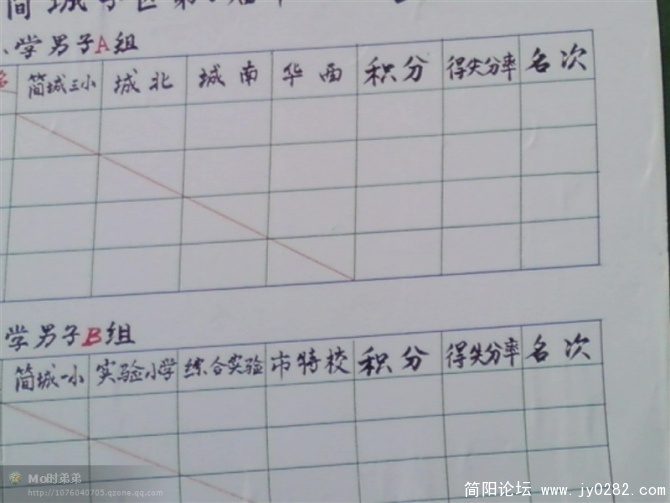 学男子A组
简城三小 城北 城南 华西 积分 得失分率 名次
学男子B组
简城一小 实验小学 综合实验 市特校 积分 得失分率 名次
Mo时弟弟
http://1076040705.qzone.qq.com
简阳论坛 www.jy0282.com